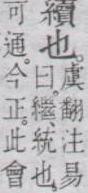 續也。
虞翻注易
曰。繼統也。
可通。今正。此會